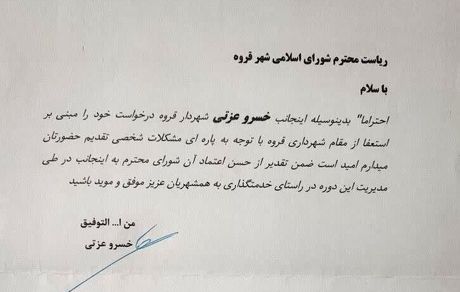 ریاست محترم شورای اسلامی شهر قروه
با سلام
احتراما" بدینوسیله اینجانب خسرو عزتی شهردار قروه درخواست خود را مبنی بر
استعفا از مقام شهرداری قروه با توجه به پاره ای مشکلات شخصی تقدیم حضورتان
میدارم امید است ضمن تقدیر از حسن اعتماد آن شورای محترم به اینجانب در طی
مدیریت این دوره در راستای خدمتگذاری به همشهریان عزیز موفق و موید باشید
من ا... التوفیق
خسرو عزتی